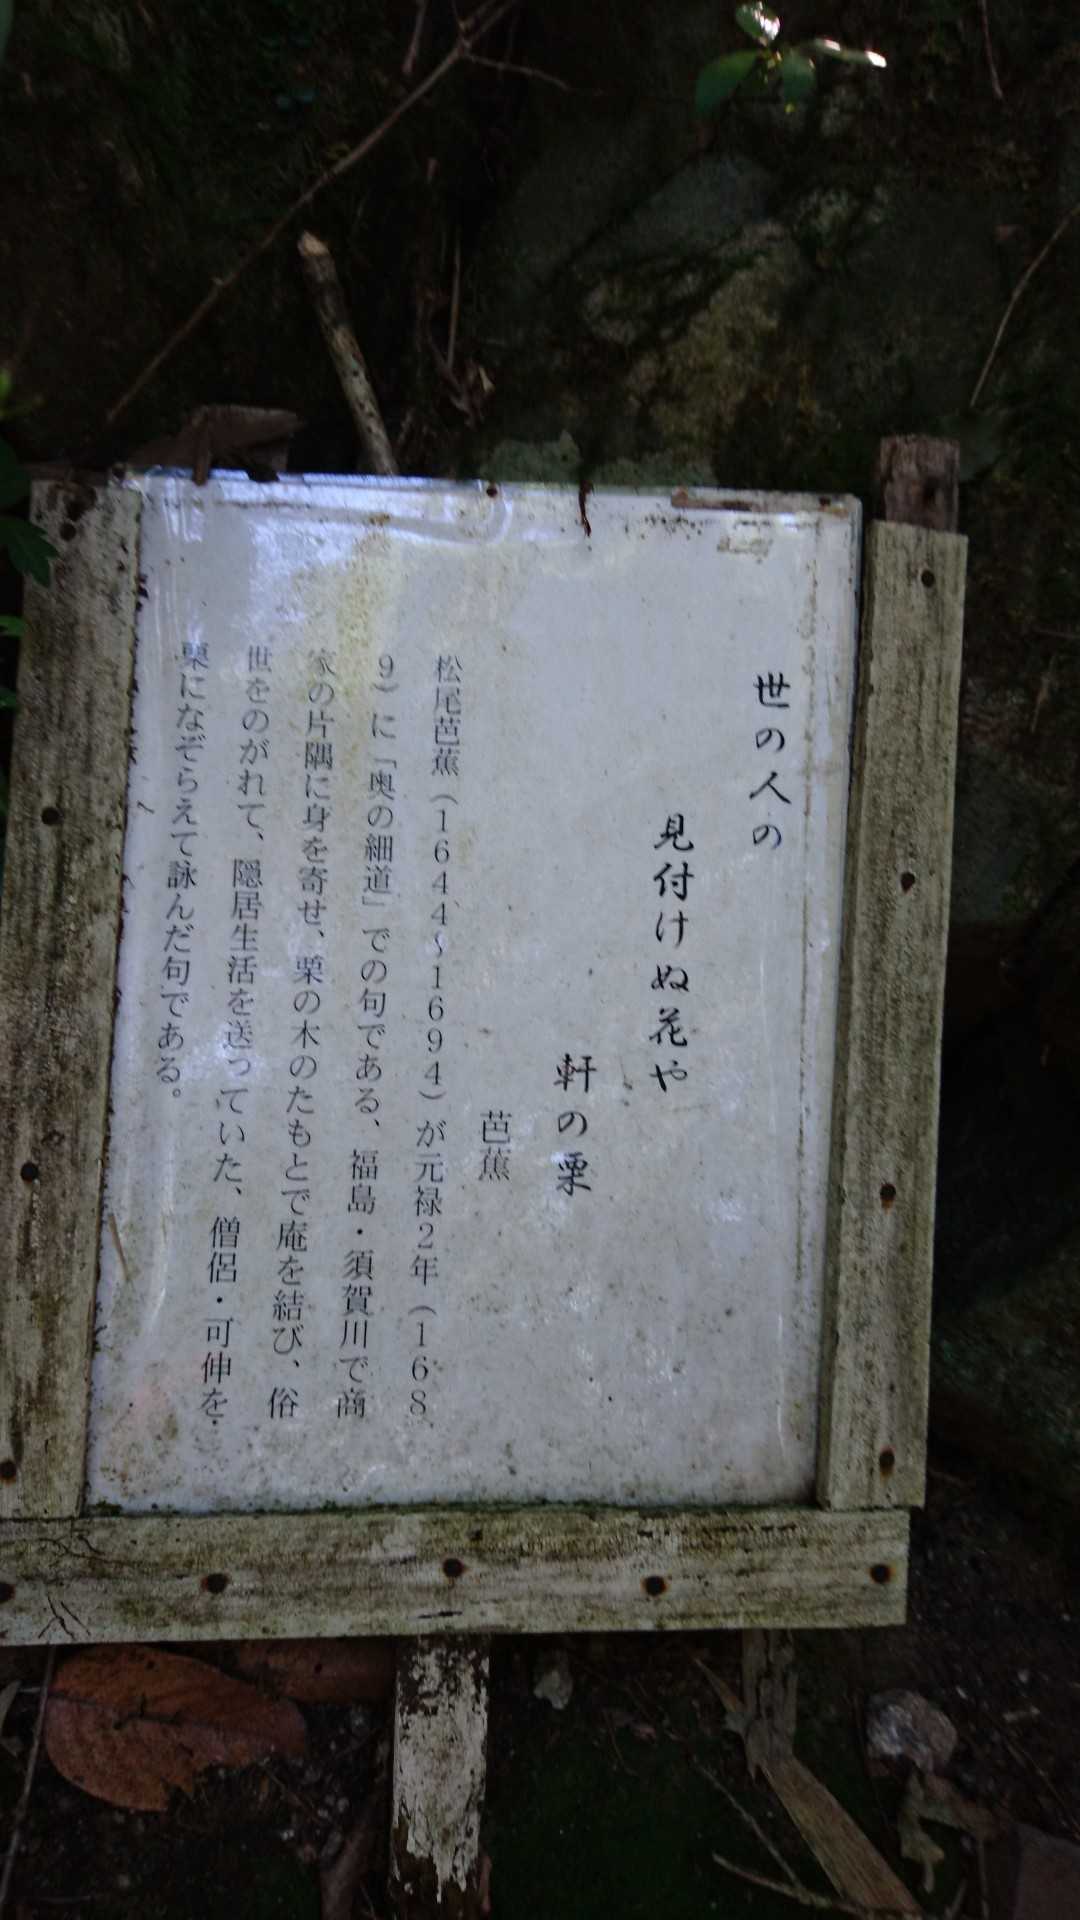 世の人の
見付けぬ花や
軒の栗
芭蕉
松尾芭蕉（１６４４～１６９４）が元禄２年（１６８
９）に「奥の細道」での句である、福島・須賀川で商
家の片隅に身を寄せ、栗の木のたもとで庵を結び、俗
世をのがれて、隠居生活を送っていた、僧侶・可伸を
栗になぞらえて詠んだ句である。